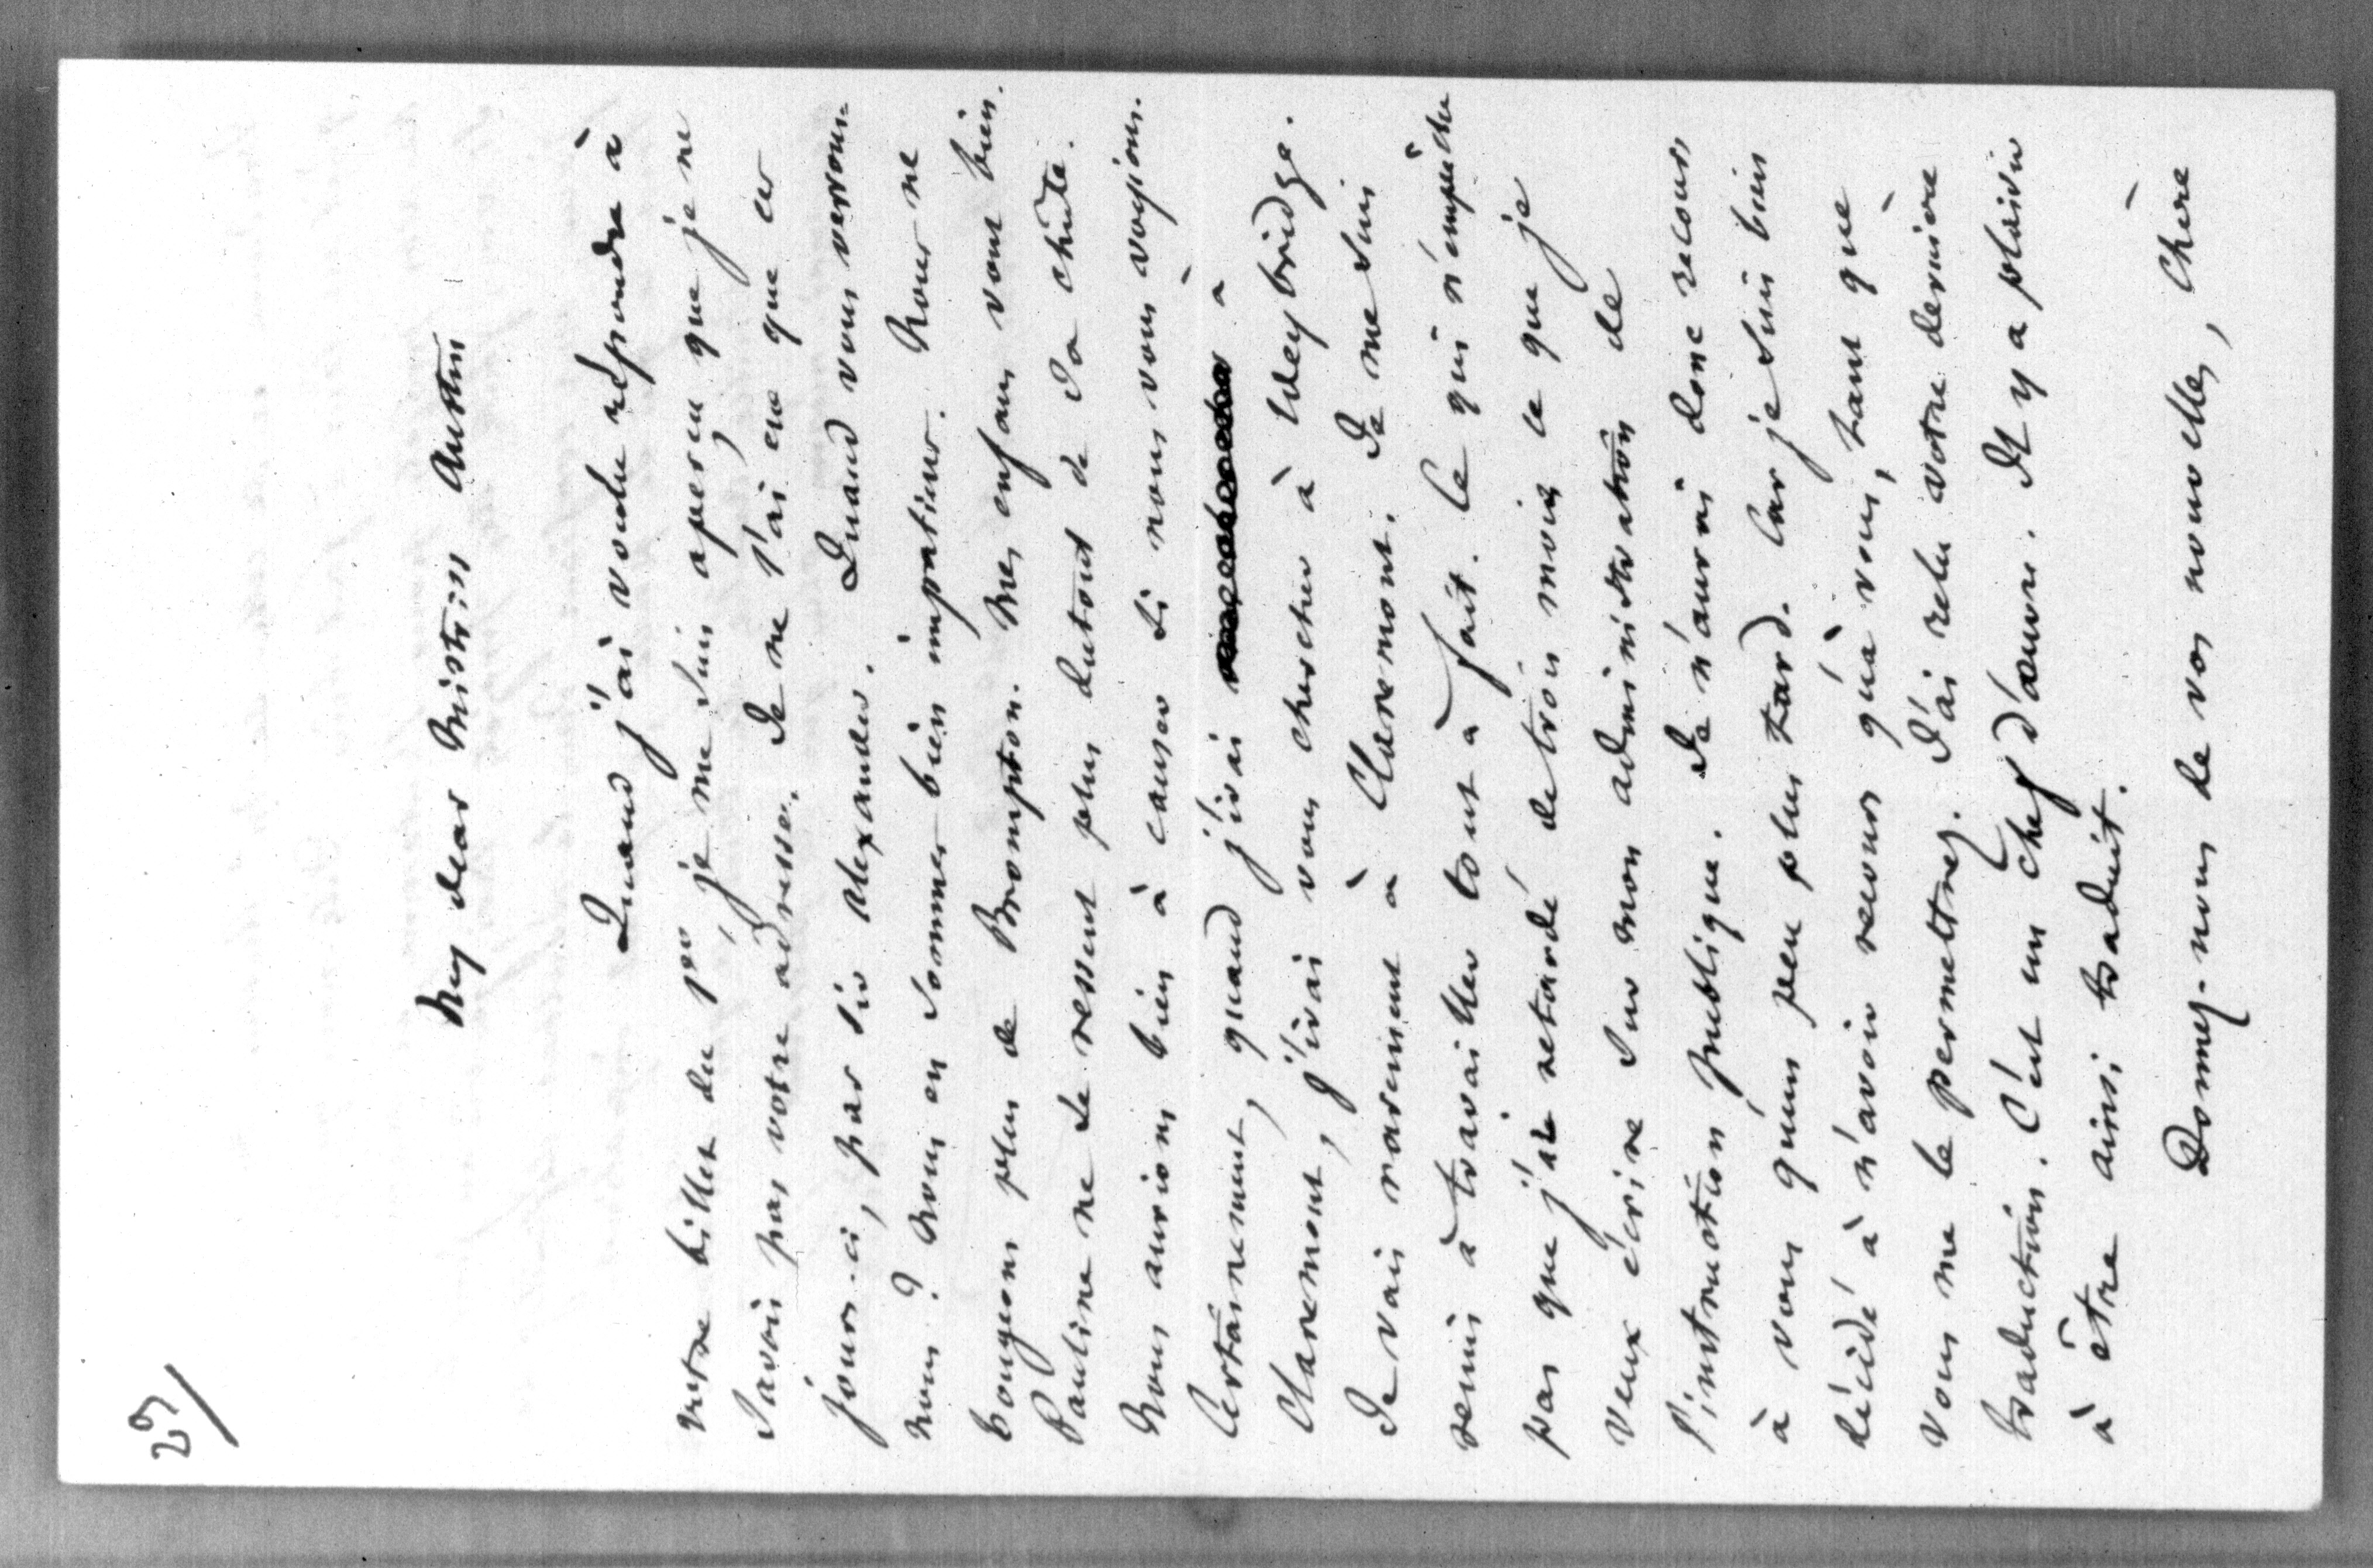 25/
My dear Mistriss Austin
Quand j'ai voulu répondre à
votre billet du 1er, je me suis aperçu que je ne
savois pas votre adresse. Je ne l'ai eue que ces
jours-ci, par sir Alexander. Quand vous verrons-
nous ? Nous en sommes bien impatiens. Nous ne
bougeons plus de Brompton. Mes enfans vont bien.
Pauline ne se ressent plus du tout de sa chûte.
Nous aurions bien à causer si nous vous voyions.
Certainement, quand j'irai à
Claremont, j'irai vous chercher à Weybridge.
Je vais rarement à Claremont. Je me suis
remis à travailler tout à fait. Ce qui n'empêche
pas que j'aie retardé de trois mois ce que je
veux écrire sur mon administration de
l'instruction publique. Je n'aurai donc recours
à vous qu'un peu plus tard. Car je suis bien
décidé à n'avoir recours qu'à vous, tant que
vous me le permettrez. J'ai relu votre dernière
traduction. C'est un chef d'œuvre. Il y a plaisir
à être ainsi traduit.
Donnez-nous de vos nouvelles, chère